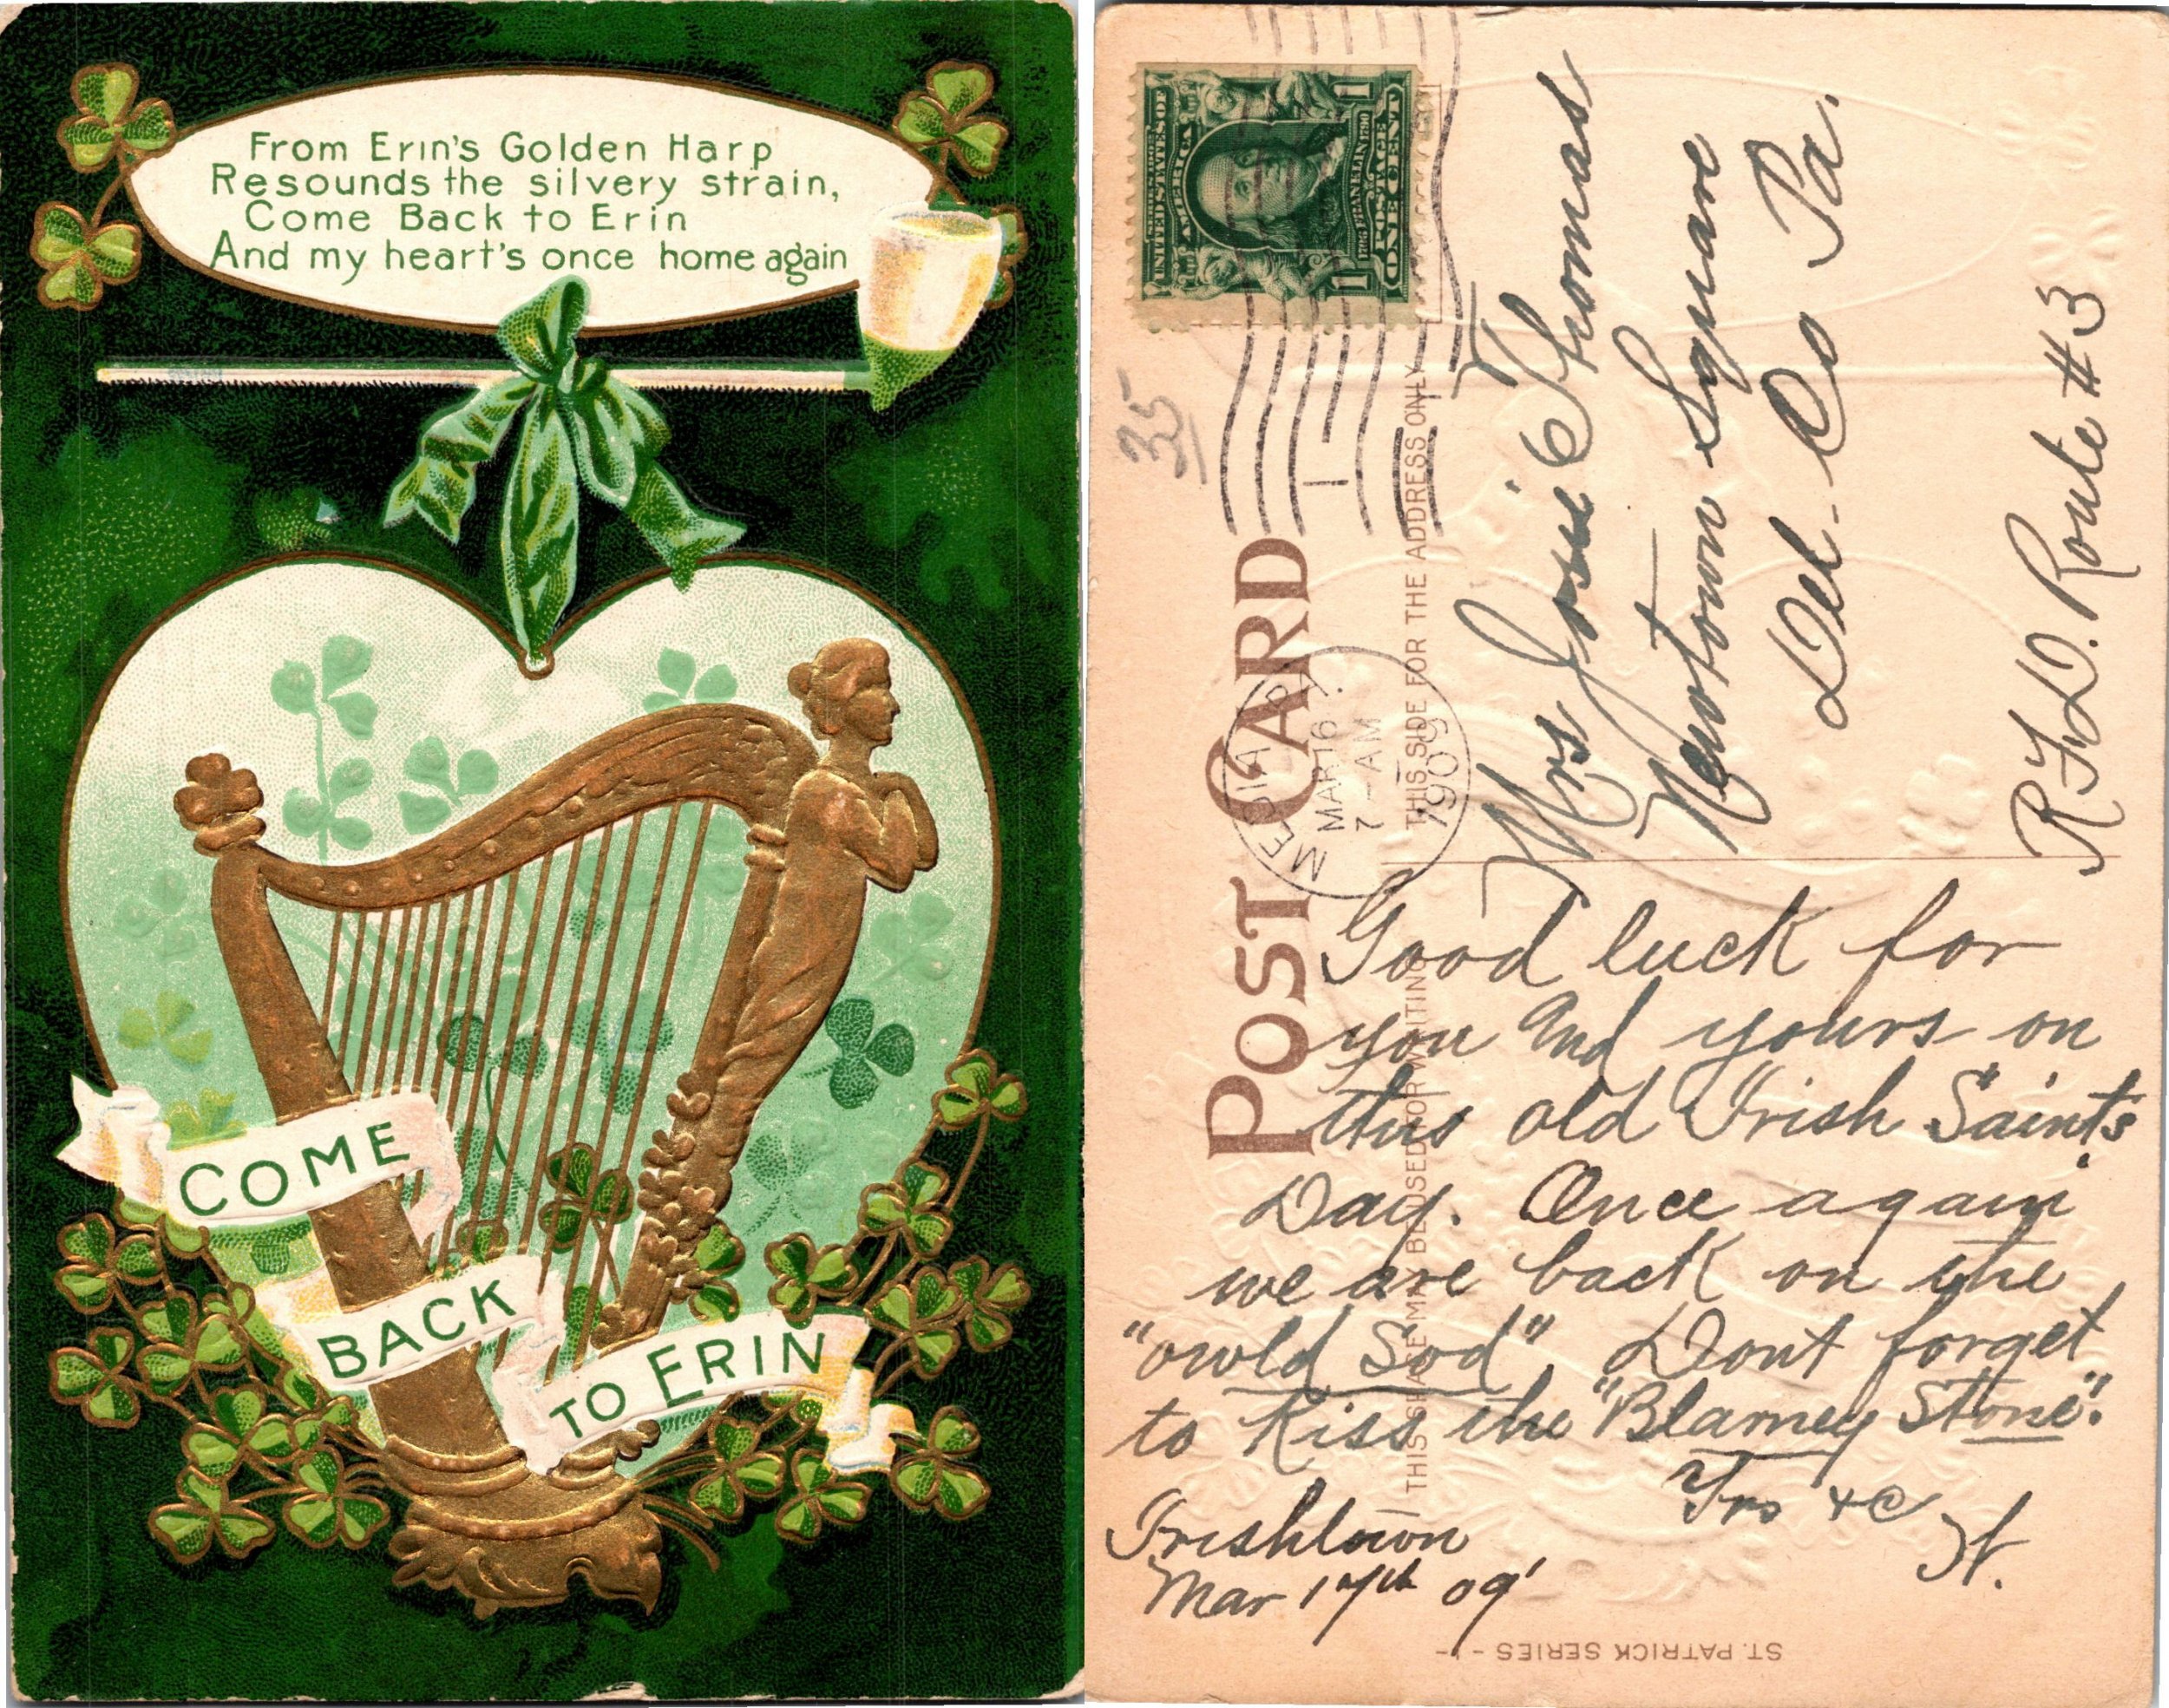 From Erin's Golden Harp
Resounds the silvery strain,
Come Back to Erin
And my heart's once home again
COME
BACK
TO ERIN
UNITED STATES OF
AMERICA
1706 FRANKLIN 1790
POSTAGE
ONE CENT
1 1
35
POST CARD
THIS SPACE MAY BE USED FOR WRITING
THIS SIDE FOR THE ADDRESS ONLY
MEDIA PA.
MAR 16
7 - AM
1909
1
Mrs Josie C Thomas
Newtown Square
Del. Co Pa.
R.F.D. Route #3
Good luck for
you and yours on
this old Irish Saint's
Day. Once again
we are back on the
"owld Sod". Dont forget
to Kiss the "Blarney Stone".
Yrs &c
H.
Irishtown
Mar 17th 09'
ST. PATRICK SERIES - 1 -